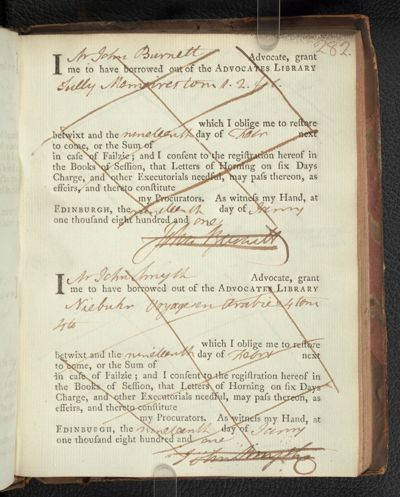 282.
I Mr John Burnett Advocate, grant
me to have borrowed out of the ADVOCATES LIBRARY
Sully Memoires tom 1. 2.
which I oblige me to reſtore
betwixt and the nineteenth day of Febr next
to come, or the Sum of
in caſe of Failzie; and I conſent to the regiſtration hereof in
the Books of Seſſion, that Letters of Horning on ſix Days
Charge, and other Executorials needful, may paſs thereon, as
effeirs, and thereto conſtitute
my Procurators. As witneſs my Hand, at
EDINBURGH, the nineteenth day of Janry
one thouſand eight hundred and one
John Burnett
I Mr John Smyth Advocate, grant
me to have borrowed out of the ADVOCATES LIBRARY
Niebuhr Voyage en Arabie 4 tom
4to
which I oblige me to reſtore
betwixt and the nineteenth day of Febr next
to come, or the Sum of
in caſe of Failzie; and I conſent to the regiſtration hereof in
the Books of Seſſion, that Letters of Horning on ſix Days
Charge, and other Executorials needful, may paſs thereon, as
effeirs, and thereto conſtitute
my Procurators. As witneſs my Hand, at
EDINBURGH, the nineteenth day of Janry
one thouſand eight hundred and one
John Smyth